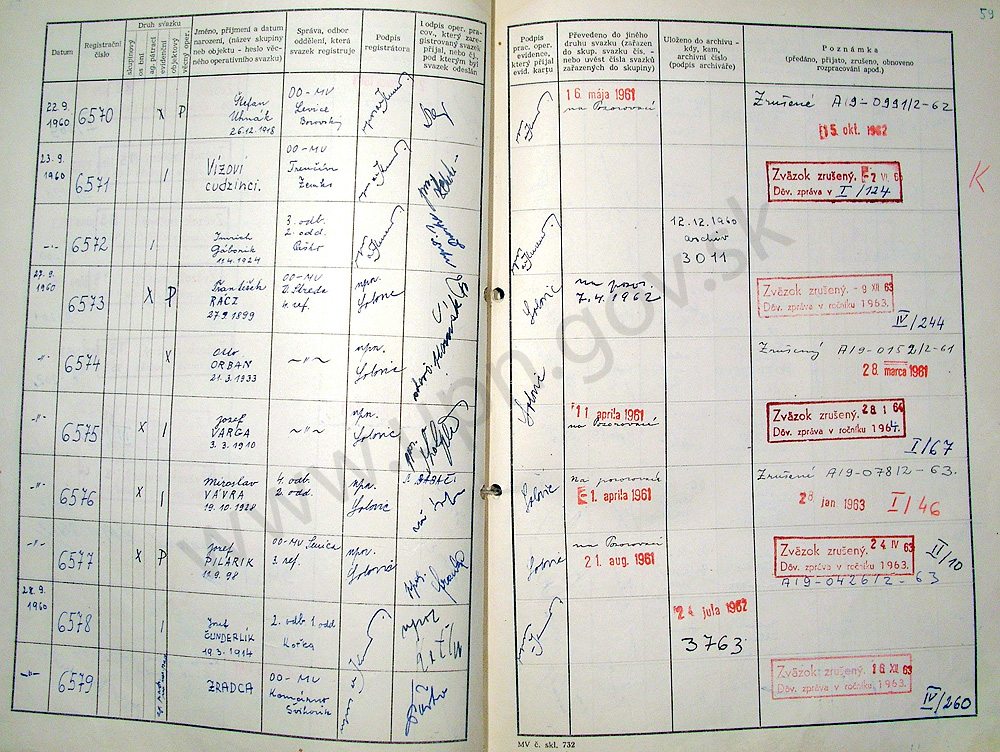 59
Datum
Registrační
číslo
Druh svazku
skupinový
evidenční
objektový
Jméno, příjmení a datum
narození, (název skupiny
neb objektu - heslo věc-
ného operativního svazku)
Správa, odbor
oddělení, která
svazek registruje
Podpis
registrátora
I podpis oper. pra-
cov., který zare-
gistrovaný svazek
přijal, nebo čj.,
pod kterým byl
svazek odeslán
Podpis
prac. oper.
evidence,
který přijal
evid. kartu
Převedeno do jiného
druhu svazku (zařazen
do skup. svazku čís. -
nebo uvést čísla svazků
zařazených do skupiny)
Uloženo do archivu -
kdy, kam,
archivní číslo
(podpis archiváře)
Poznámka
(předáno, přijato, zrušeno, obnoveno
rozpracování apod.)
22.9.
1960
6570
X P
Štefan
Uhnák
26.12.1918
OO-MV
Levice
Borovský
16. mája 1961
na Pozorovací
Zrušené A19-0991/2-62
15. okt. 1962
23.9.
1960
6571
Vízoví
cudzinci.
OO-MV
Trenčín
Zväzok zrušený.
Dôv. zpráva v I/124
K
6572
Imrich
Gáborík
11.4.1924
3. odb.
2. odd.
12.12.1960
archív
3011
27.9.
1960
6573
X P
František
RÁCZ
27.9.1899
OO-MV
D. Streda
4. ref.
npor.
Solovic
Solovic
na pozor.
7.4.1962
Zväzok zrušený. - 9 XII 63
Dôv. zpráva v ročníku 1963.
IV/244
-"-
6574
X
Otto
ORBAN
21.3.1933
-"-
npor.
Solovic
Solovic
Zrušený A19-0152/2-61
28 marca 1961
-"-
6575
X
Jozef
VARGA
3.3.1910
-"-
npor.
Solovic
11 apríla 1961
na Pozorovacie
Zväzok zrušený. 28 I 64
Dôv. zpráva v ročníku 1964.
I/67
-"-
6576
X
Miroslav
VÁVRA
19.10.1928
4. odb.
2. odd.
npor.
Solovic
Solovic
Na pozorovacie
1. apríla 1961
Zrušené A19-078/2-63.
28 jan 1963 I/46
-"-
6577
X P
Jozef
PILÁRIK
11.9.98
OO-MV Senica
3. ref.
npor.
Solovic
Solovic
na Pozorovací
21 aug. 1961
Zväzok zrušený. 24 IV 63
Dôv. zpráva v ročníku 1963.
II/10
A19-0426/2-63
28.9.
1960
6578
Jozef
ČUNDERLÍK
19.3.1914
2. odb 1 odd
24 júla 1962
3763
-"-
6579
ZRADCA
OO-MV
Komárno
Zväzok zrušený. 16 XII 63
Dôv. zpráva v ročníku 1963.
IV/260
MV č. skl. 732
www.upn.gov.sk